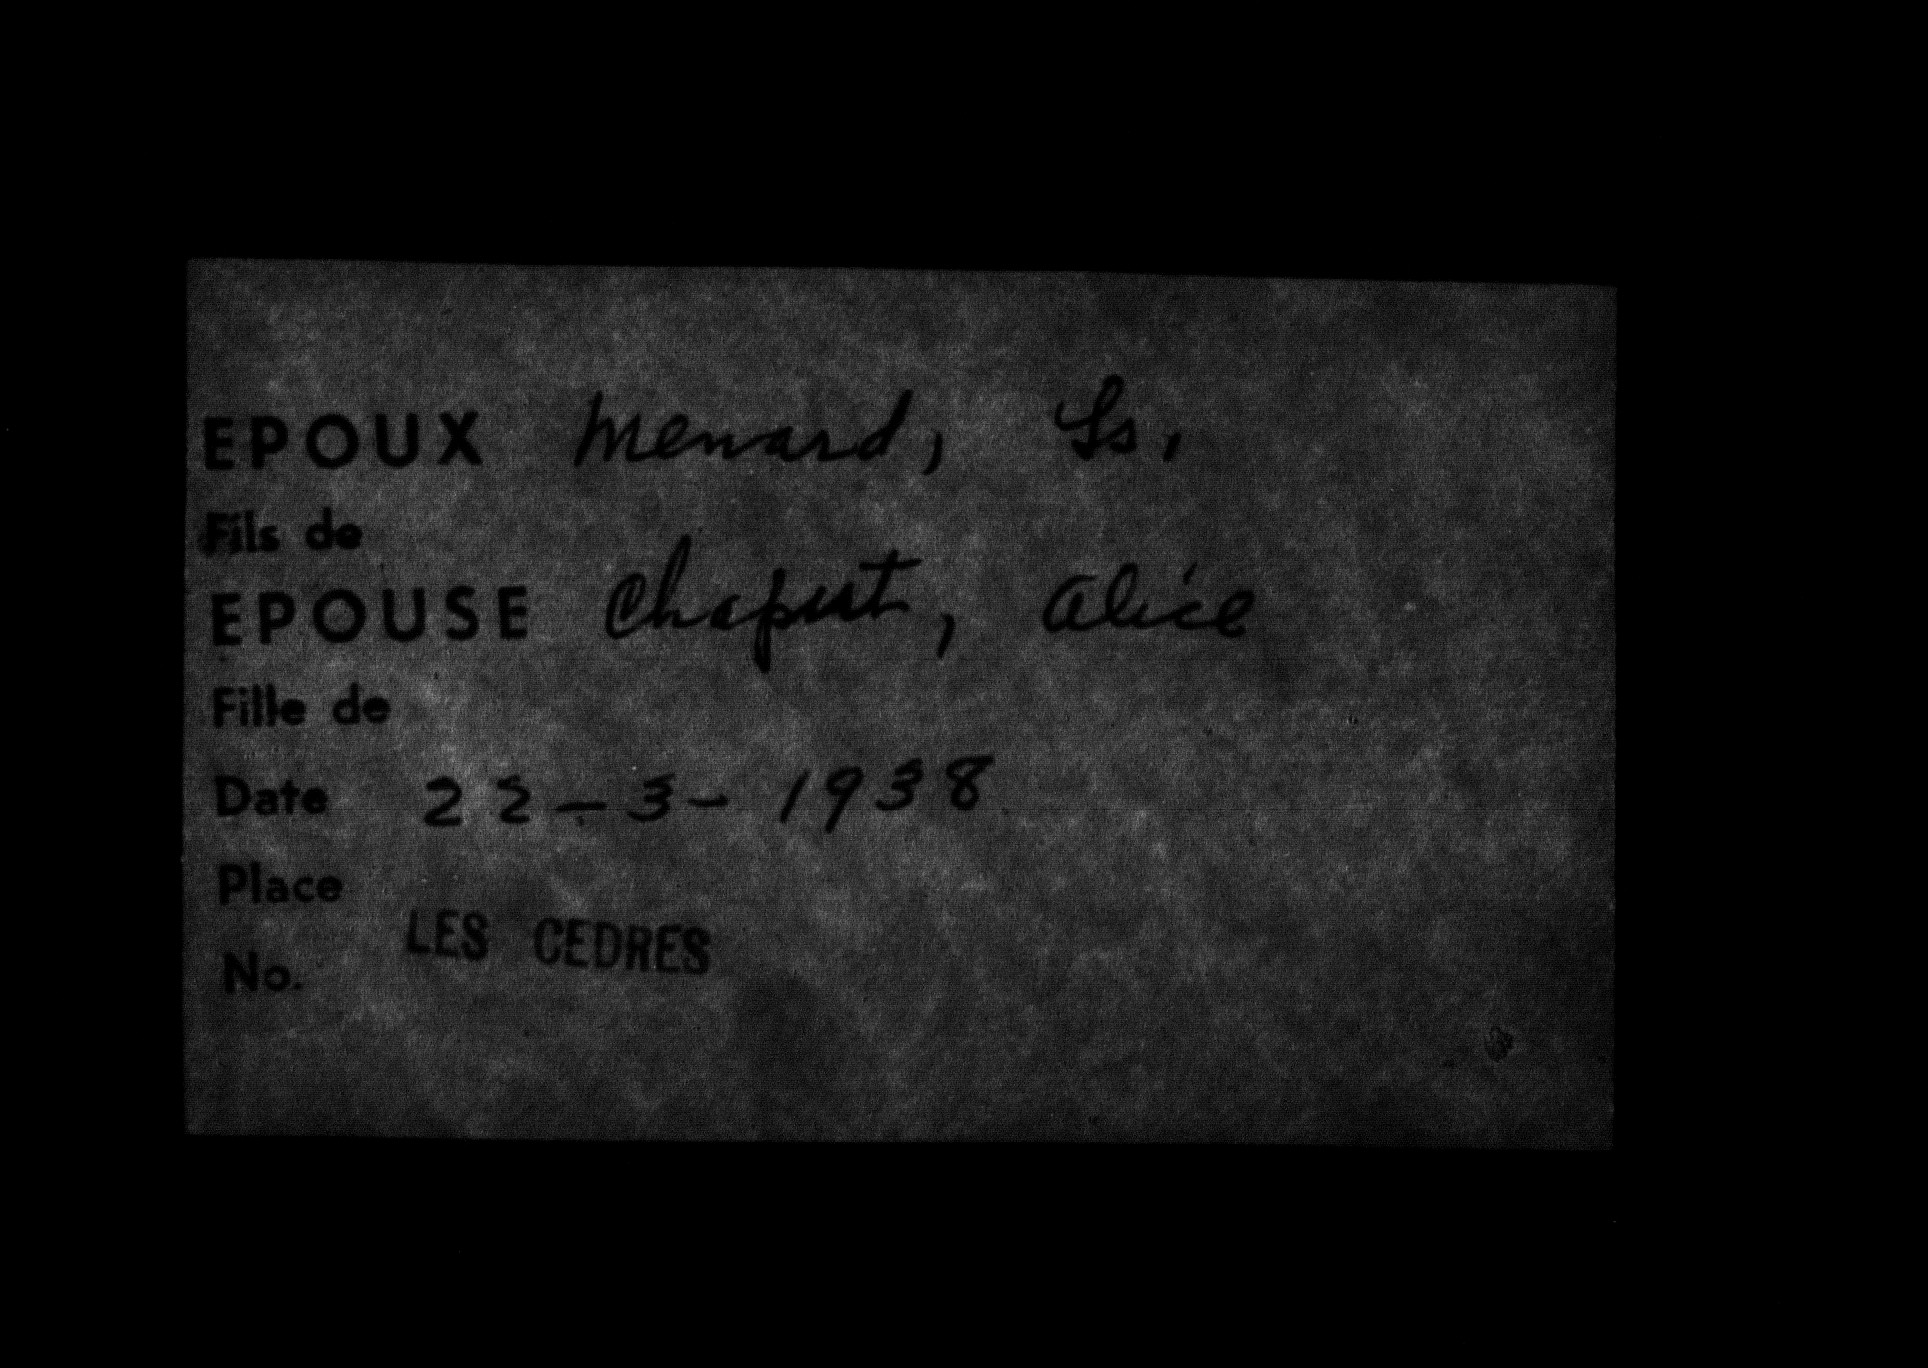 EPOUX Menard, Ls.
Fils de
EPOUSE Chaput, Alice
Fille de
Date 22-3-1938
Place
LES CEDRES
No.